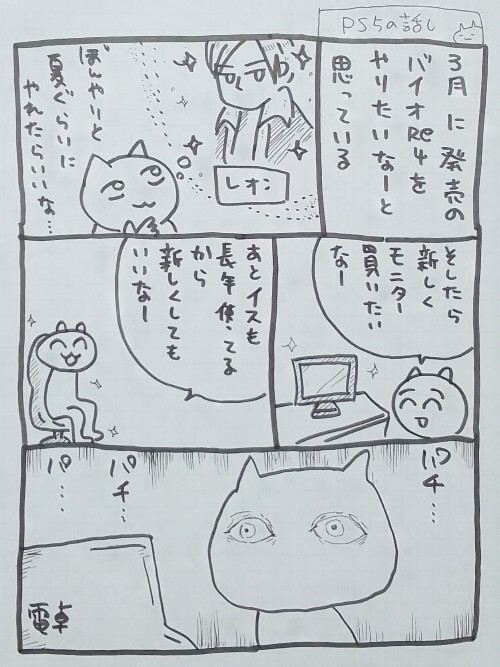 PS5の話し
3月に発売の
バイオRe4を
やりたいなーと
思っている
レオン
ぼんやりと
夏ぐらいに
やれたらいいな…
そしたら
新しく
モニター
買いたい
なー
あとイスも
長年使ってる
から
新しくしても
いいなー
パチ…
パチ…
パ…
電卓